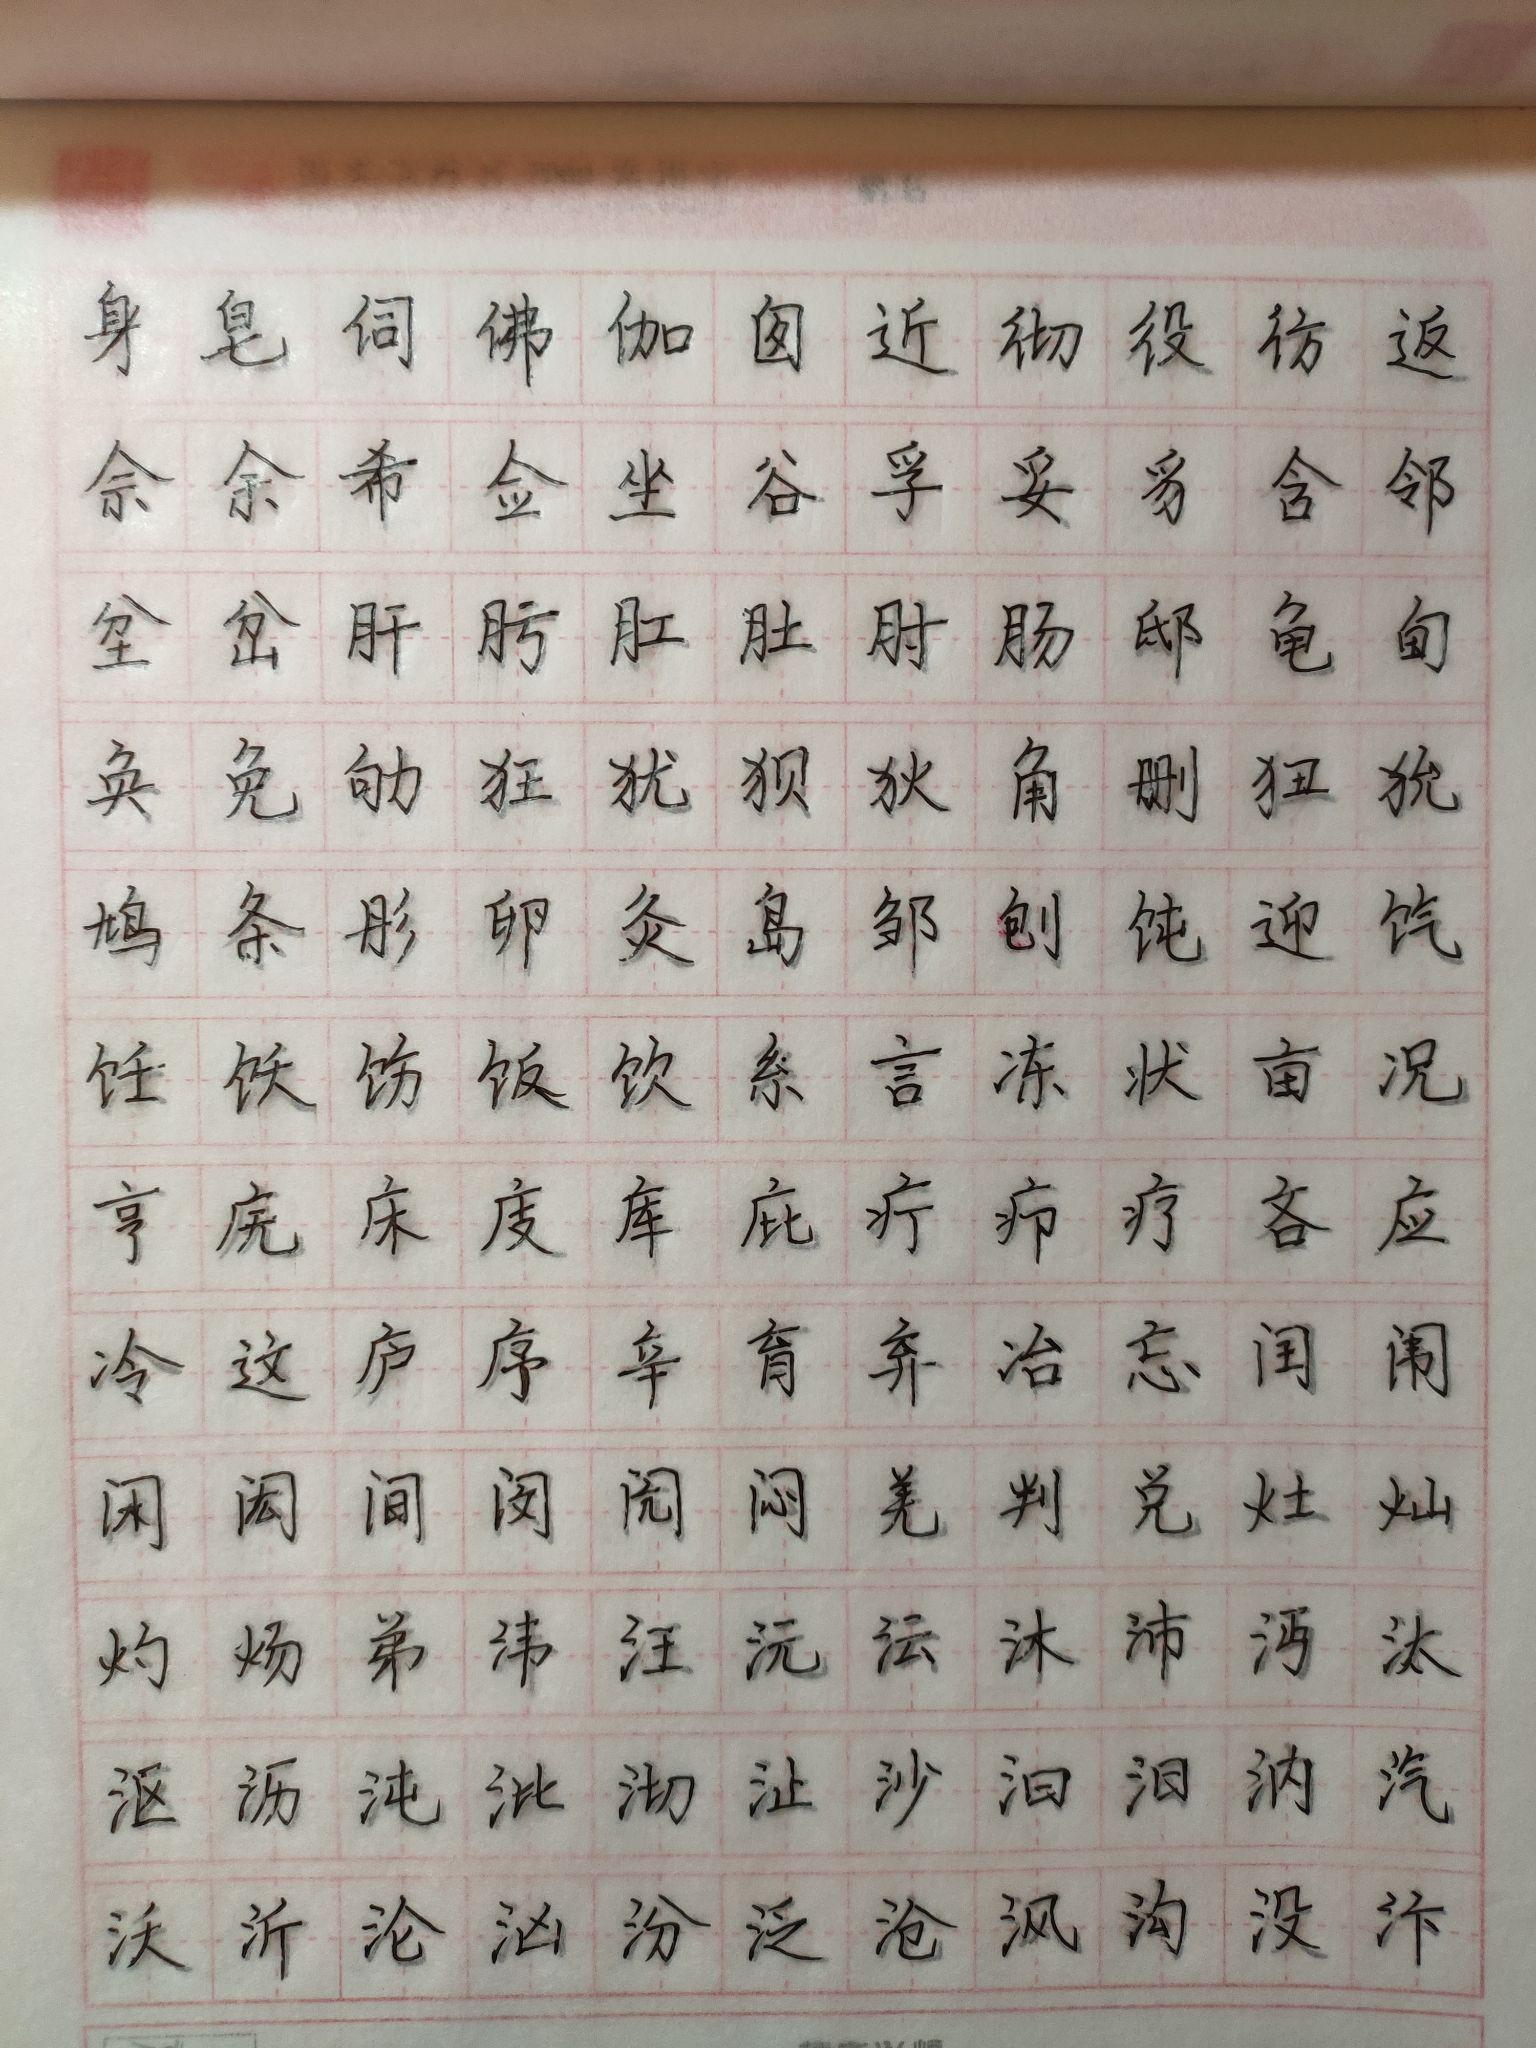 身皂伺佛伽囱近彻役彷返
佘余希佥坐谷孚妥豸含邻
坌岔肝肟肛肚肘肠邸龟甸
奂免劬狂犹狈狄角删狃狁
鸠条彤卵灸岛邹刨饨迎饩
饪饫饬饭饮系言冻状亩况
亨庑床庋库庇疔疖疗吝应
冷这庐序辛育弃冶忘闰闱
闲闳间闵阌闷羌判兑灶灿
灼炀弟沣汪沅沄沐沛沔汰
沤沥沌沘沏沚沙汩汨汭汽
沃沂沦汹汾泛沧沨沟没汴